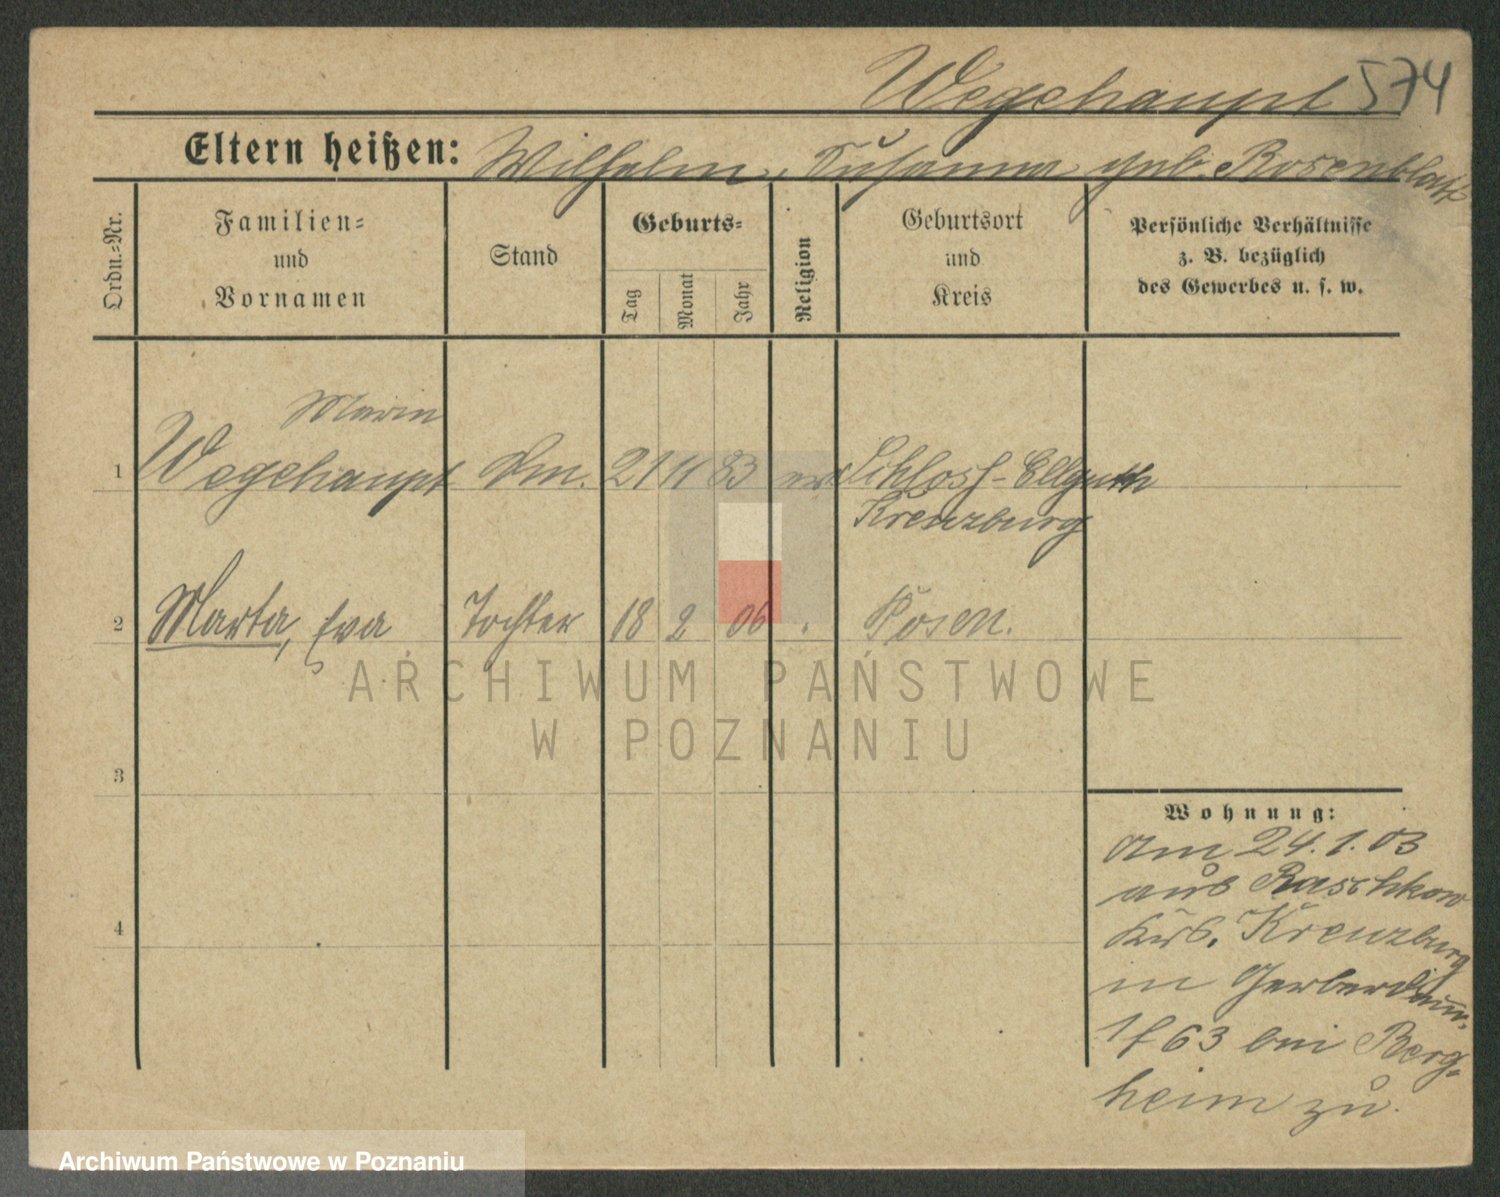 Wegehaupt 574
Eltern heißen: Wilhelm, Susanna geb. Rosenblatt
Ordn.-Nr.
Familien- und Vornamen
Stand
Geburts-
Tag
Monat
Jahr
Religion
Geburtsort und Kreis
Persönliche Verhältnisse
z. B. bezüglich
des Gewerbes u. s. w.
Marie
1 Wegehaupt 21 11 83 ev Schloss-Ellguth
Kreuzburg
2 Marta, Eva Tochter 18 2 06 . Posen.
3
4
Wohnung:
Am 24.1.03
aus Raschkow
Krb. Kreuzburg
in
163 bei Berg-
heim zu.
ARCHIWUM PAŃSTWOWE
W POZNANIU
Archiwum Państwowe w Poznaniu